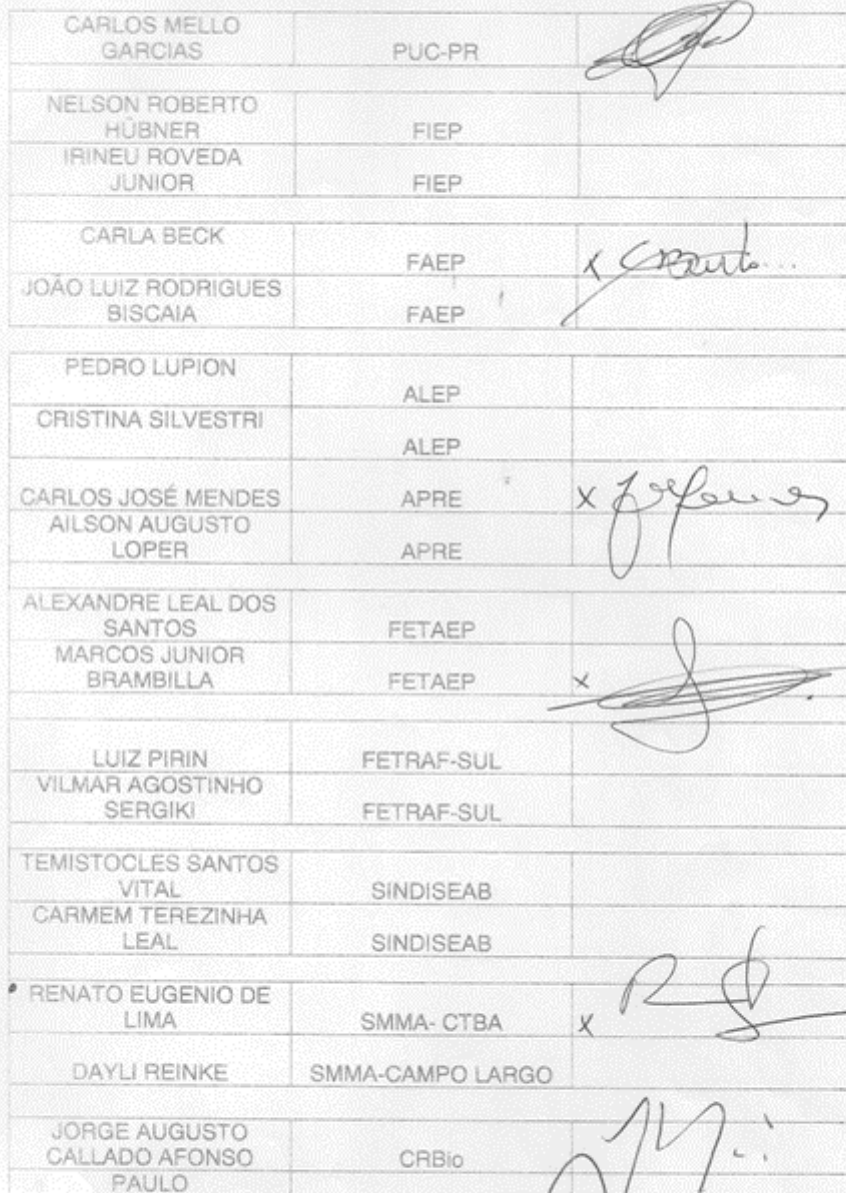 CARLOS MELLO
GARCIAS PUC-PR
NELSON ROBERTO
HÜBNER FIEP
IRINEU ROVEDA
JUNIOR FIEP
CARLA BECK
FAEP X
JOÃO LUIZ RODRIGUES
BISCAIA FAEP
PEDRO LUPION
ALEP
CRISTINA SILVESTRI
ALEP
CARLOS JOSÉ MENDES APRE X
AILSON AUGUSTO
LOPER APRE
ALEXANDRE LEAL DOS
SANTOS FETAEP
MARCOS JUNIOR
BRAMBILLA FETAEP X
LUIZ PIRIN FETRAF-SUL
VILMAR AGOSTINHO
SERGIKI FETRAF-SUL
TEMISTOCLES SANTOS
VITAL SINDISEAB
CARMEM TEREZINHA
LEAL SINDISEAB
RENATO EUGENIO DE
LIMA SMMA- CTBA X
DAYLI REINKE SMMA-CAMPO LARGO
JORGE AUGUSTO
CALLADO AFONSO CRBio
PAULO